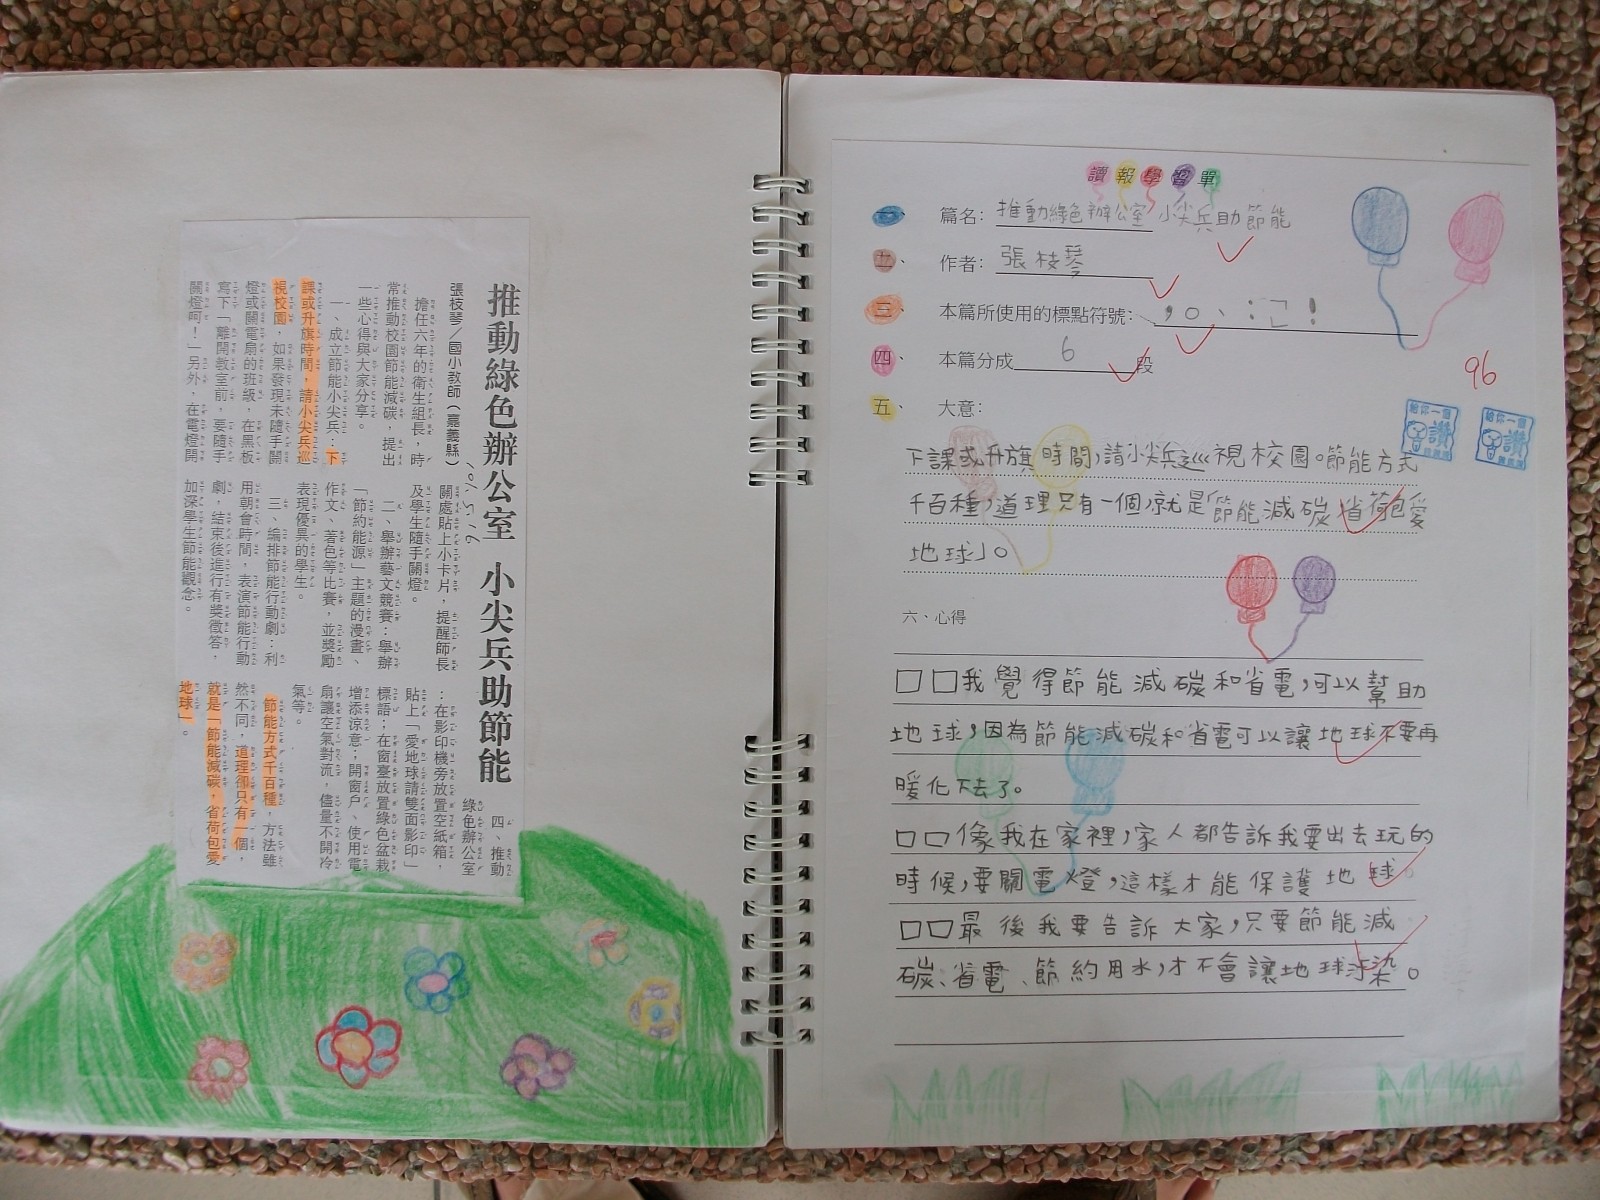 推動綠色辦公室 小尖兵助節能
張枝琴/國小教師(嘉義縣)
擔任六年的衛生組長,時
常推動校園節能減碳,提出
一些心得與大家分享。
一、成立節能小尖兵:下
課或升旗時間,請小尖兵巡
視校園,如果發現未隨手關
燈或關電扇的班級,在黑板
寫下「離開教室前,要隨手
關燈呵!」另外,在電燈開
關處貼上小卡片,提醒師長
及學生隨手關燈。
二、舉辦藝文競賽:舉辦
「節約能源」主題的漫畫、
作文、著色等比賽,並獎勵
表現優異的學生。
三、編排節能行動劇:利
用朝會時間,表演節能行動
劇,結束後進行有獎徵答,
加深學生節能觀念。
四、推動
綠色辦公室
:在影印機旁放置空紙箱,
貼上「愛地球請雙面影印」
標語;在窗臺放置綠色盆栽
增添涼意;開窗戶、使用電
扇讓空氣對流,儘量不開冷
氣等。
節能方式千百種,方法雖
然不同,道理卻只有一個,
就是「節能減碳,省荷包愛
地球」。
讀報學習單
一、 篇名:推動綠色辦公室 小尖兵助節能
二、 作者:張枝琴
三、 本篇所使用的標點符號:,。、:「」!
四、 本篇分成6段
96
五、 大意:
給你一個讚
給你一個讚
下課或升旗時間,請小尖兵巡視校園。節能方式
千百種,道理只有一個,就是「節能減碳省荷包愛
地球」。
六、心得
□□我覺得節能減碳和省電,可以幫助
地球,因為節能減碳和省電可以讓地球不要再
暖化下去了。
□□像我在家裡,家人都告訴我要出去玩的
時候,要關電燈,這樣才能保護地球。
□□最後我要告訴大家,只要節能減
碳、省電、節約用水,才不會讓地球汙染。